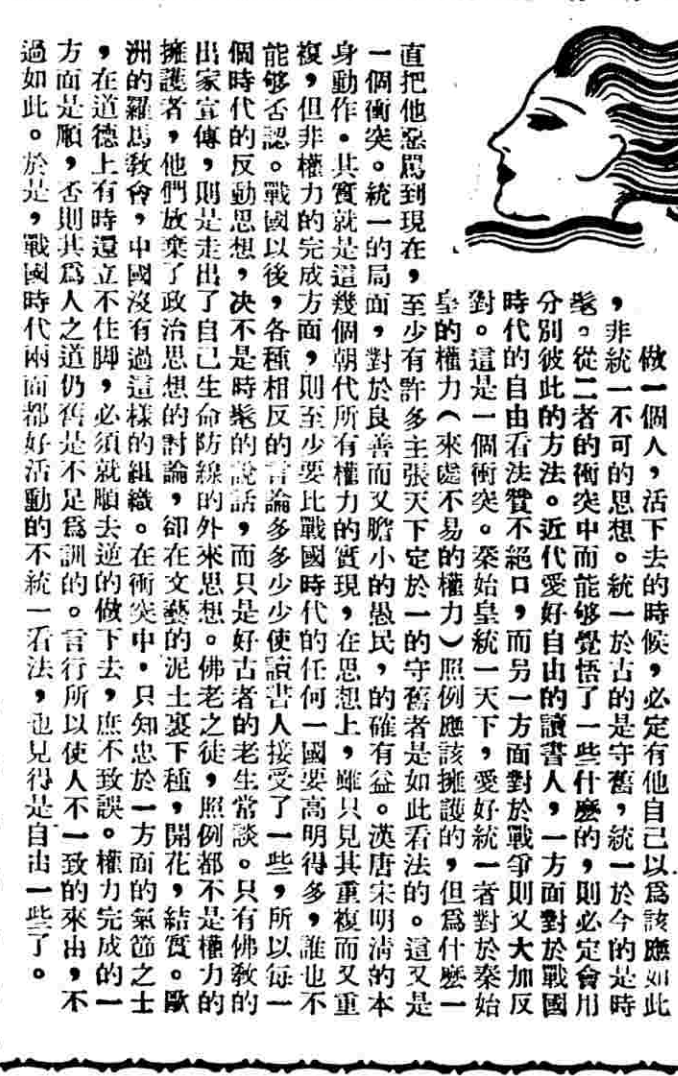 做一個人，活下去的時候，必定有他自己以爲該應如此
，非統一不可的思想。統一於古的是守舊，統一於今的是時
髦。從二者的衝突中而能够覺悟了一些什麼的，則必定會用
分別彼此的方法。近代愛好自由的讀書人，一方面對於戰國
時代的自由看法贊不絕口，而另一方面對於戰爭則又大加反
對。這是一個衝突。秦始皇統一天下，愛好統一者對於秦始
皇的權力（來處不易的權力）照例應該擁護的，但爲什麼一
直把他惡罵到現在，至少有許多主張天下定於一的守舊者是如此看法的。這又是
一個衝突。統一的局面，對於良善而又膽小的愚民，的確有益。漢唐宋明清的本
身動作。其實就是這幾個朝代所有權力的實現，在思想上，雖只見其重複而又重
複，但非權力的完成方面，則至少要比戰國時代的任何一國要高明得多，誰也不
能够否認。戰國以後，各種相反的言論多多少少使讀書人接受了一些，所以每一
個時代的反動思想，決不是時髦的說話，而只是好古者的老生常談。只有佛敎的
出家宣傳，則是走出了自己生命防線的外來思想。佛老之徒，照例都不是權力的
擁護者，他們放棄了政治思想的討論，卻在文藝的泥土裏下種，開花，結實。歐
洲的羅馬敎會，中國沒有過這樣的組織。在衝突中，只知忠於一方面的氣節之士
，在道德上有時還立不住脚，必須就順去逆的做下去，庶不致誤。權力完成的一
方面是順，否則其爲人之道仍舊是不足爲訓的。言行所以使人不一致的來由，不
過如此。於是，戰國時代兩面都好活動的不統一看法，也見得是自由一些了。